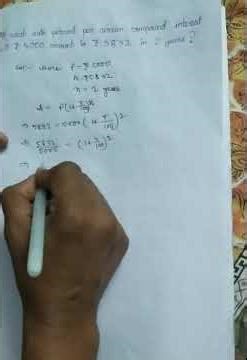 what rate percent per annum compound interest
₹ 5000 amount to ₹ 5832 in 2 years ?
Sol:- Given P = ₹ 5000
A = ₹ 5832
n = 2 years
A = P(1+ r/100)^n
⇒ 5832 = 5000 (1+ r/100)^2
⇒ 5832/5000 = (1+ r/100)^2
⇒